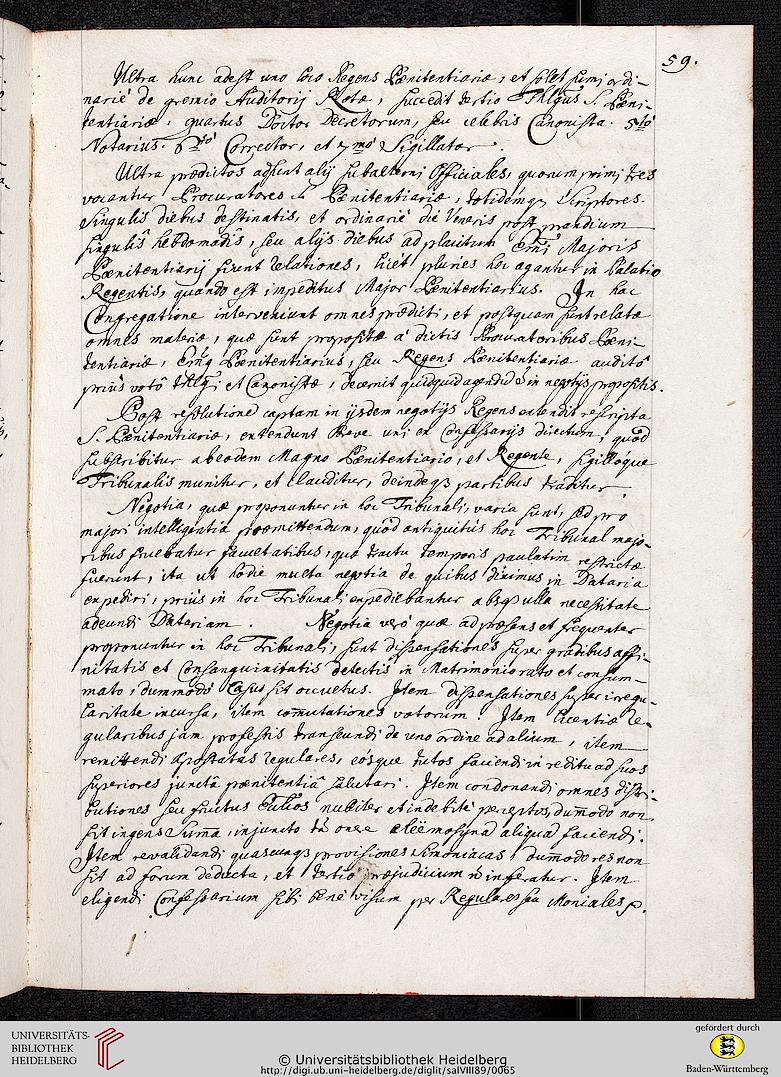 59.
Ultra hunc adest uno loco Regens Pœnitentiariæ, et solet sumi ordi-
narie de gremio Auditorij Rotæ, succedit tertio Thlgus S. Pæni-
tentiariæ, quartus Doctor Decretorum, seu celebris Canonista. 5to
Notarius. 6to Corrector, et 7mo Sigillator.
Ultra prædictos adsunt alij subalterni Officiales, quorum primi tres
vocantur Procuratores S. Pænitentiariæ, totidemq, Scriptores.
Singulis diebus destinatis, et ordinarie die Veneris post prandium
singulis hebdomadis, seu alijs diebus ad placitum Emi Majoris
Pænitentiarij fiunt relationes, licet pluries hoc agantur in Palatio
Regentis, quando est impeditus Major Pænitentiarius. In hac
Congregatione interveniunt omnes præditi, et postquam sunt relatæ
omnes materiæ, quæ sunt propositæ à dictis Procuratoribus Pæni-
tentiariæ, Pænitentiarius, seu Regens Pænitentiariæ audito
prius voto Thlgi et Canonistæ, decernit quidquid agendū in negotijs propositis.
Post resolutione captam in ijsdem negotijs Regens extendit rescripta
S. Pænitentiariæ, extendunt Breve uni ex Confessarijs directum, quod
subscribitur ab eodem Magno Pænitentiario, et Regente, sigilloque
Tribunalis munitur, et clauditur, deindeq partibus traditur.
Negotia, quæ proponuntur in hoc Tribunali, varia sunt, sed pro
majori intelligentia præmittendum, quod antiquitus hoc Tribunal majo-
ribus fruebatur facultatibus, quæ tractu temporis paulatim restrictæ
fuerunt, ita ut hodie multa negotia de quibus diximus in Dataria
expediri, prius in hoc Tribunali expediebantur absq ulla necessitate
adeundi Datariam. Negotia vero quæ ad præsens et frequenter
proponuntur in hoc Tribunali, sunt dispensationes super gradibus affi-
nitatis et Consanguinitatis detectis in Matrimonio rato et consum-
mato, dummodo Casus sit occultus. Item dispensationes super irregu-
laritate incursa, item com̄utationes votorum. Item licentiæ re-
gularibus jam professis transeundi de uno ordine ad alium, item
remittendi Apostatas regulares, eosque tutos faciendi in reditu ad suos
superiores juncta pænitentia salutari. Item condonandi omnes distri-
butiones seu fructus nulliter et indebite perceptos, dum̄odo non
sit ingens Sum̄a, injuncto tn̄ onere eleëmosynā aliquā faciendi.
Item revalidandi quascunq provisiones Simoniacas, dum̄odo res non
sit ad forum deducta, et tertio præjudicium n̄ inferatur. Item
eligendi Confessarium sibi bene visum per Regulares seu Moniales p.
UNIVERSITÄTS-
BIBLIOTHEK
HEIDELBERG
© Universitätsbibliothek Heidelberg
http://digi.ub.uni-heidelberg.de/diglit/salVIII89/0065
gefördert durch
Baden-Württemberg